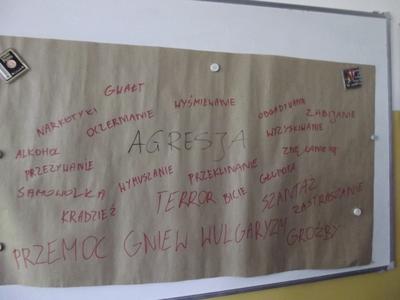 GWAŁT
NARKOTYKI OCZERNIANIE WYŚMIEWANIE OBGADYWANIE ZABIJANIE
ALKOHOL AGRESJA WYZYSKIWANIE
PRZEZYWANIE WYMUSZANIE PRZEKLINANIE ZNĘCANIE SIĘ
SAMOWOLKA TERROR BICIE GŁUPOTA SZANTAŻ
KRADZIEŻ ZASTRASZANIE
PRZEMOC GNIEW WULGARYZMY GROŹBY